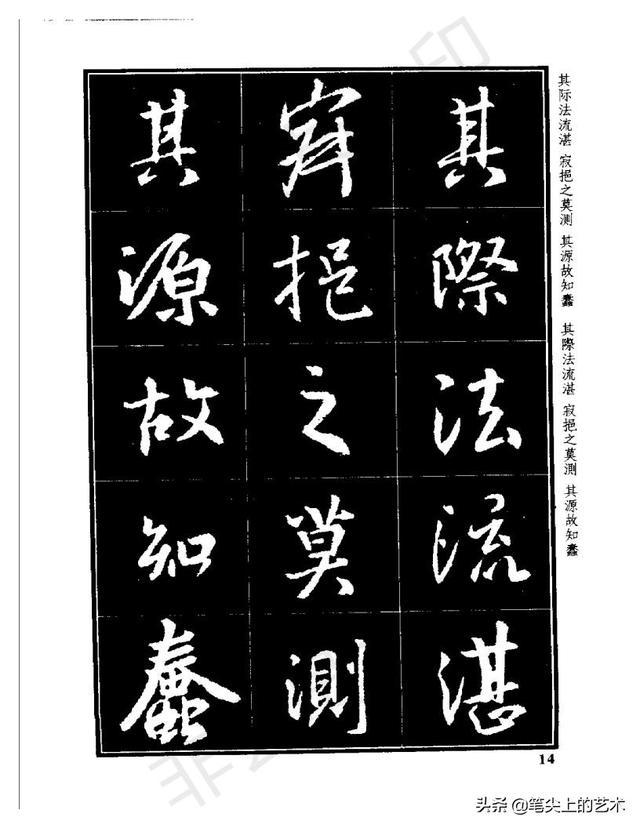 其際法流湛
寂挹之莫測
其源故知蠢
其际法流湛 寂挹之莫测 其源故知蠢 其際法流湛 寂挹之莫測 其源故知蠢
14
头条 @笔尖上的艺术